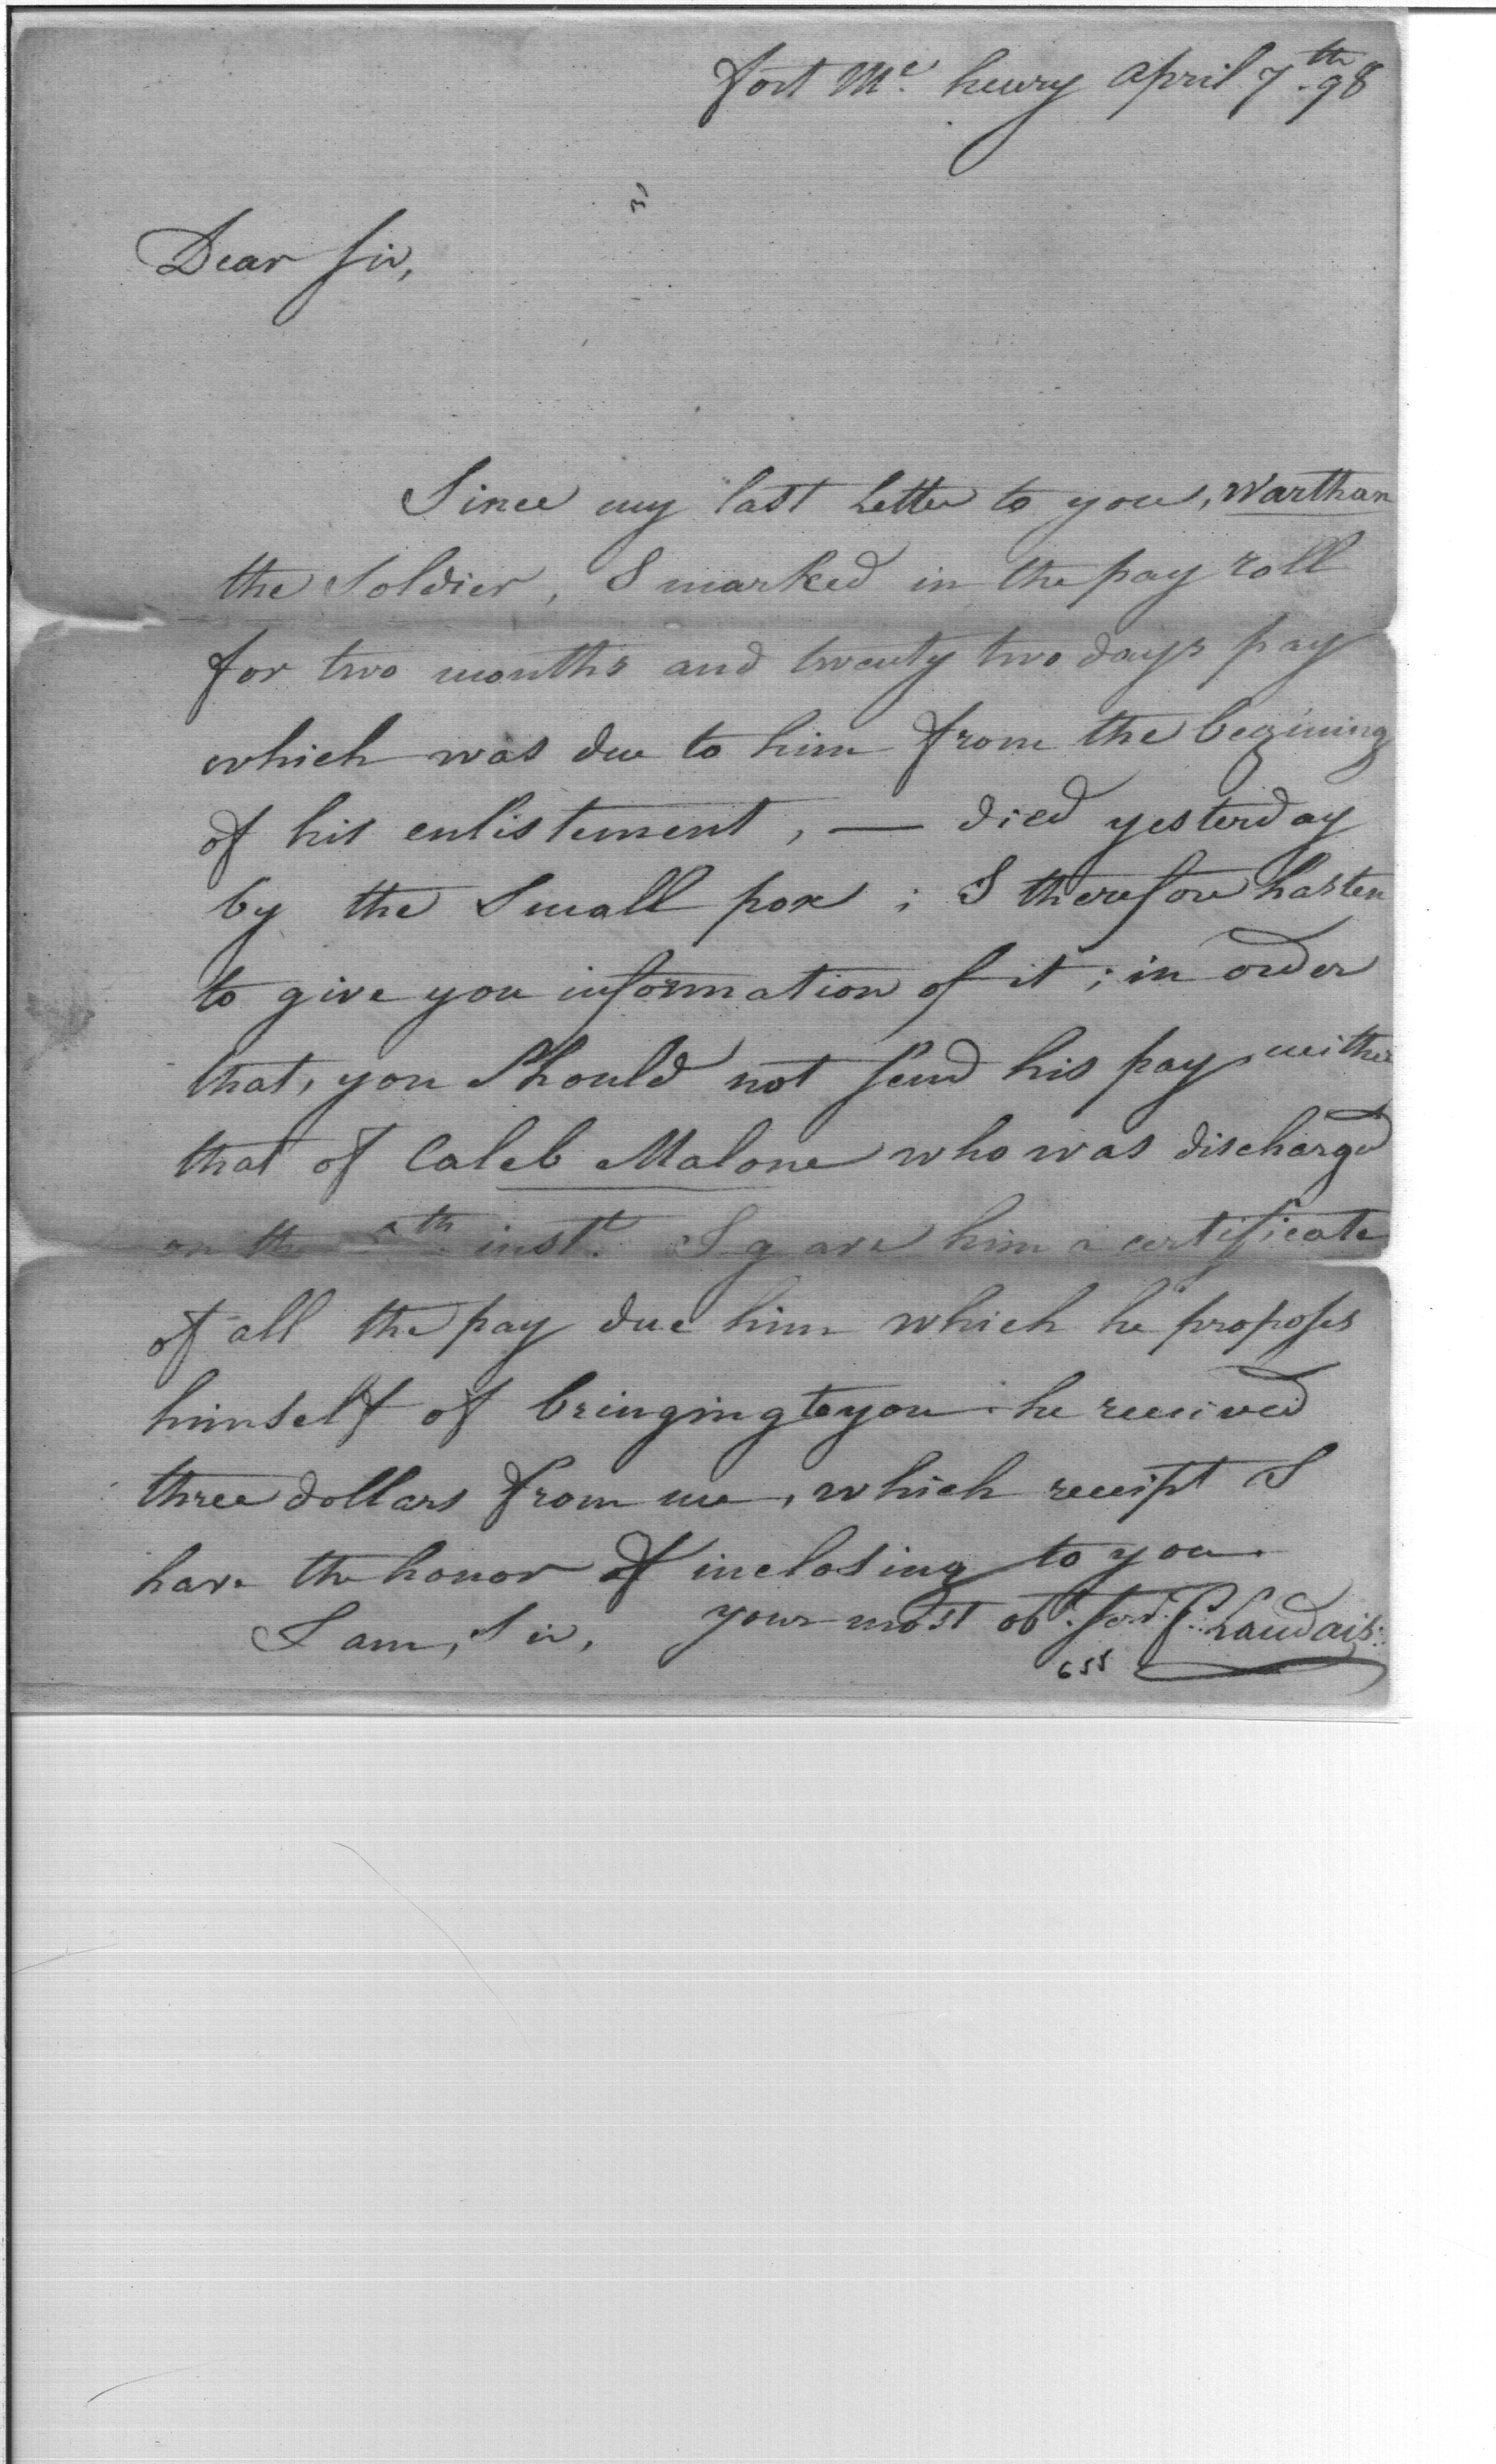 fort Mc. henry april 7th. 98
Dear Sir,
Since my last Letter to you, Warthan
the Soldier, I marked in the pay roll
for two months and twenty two days pay
which was due to him from the begining
of his enlistement, — died yesterday
by the Small pox ; I therefore hasten
to give you information of it ; in order
that, you Should not Send his pay neither
that of Caleb Malone who was discharged
on the th. inst. I gave him a certificate
of all the pay due him which he proposes
himself of bringing to you. he received
three dollars from me, which receipt I
have the honor of inclosing to you.
I am, Sir, your most obt. Servt. P. Landais.
655